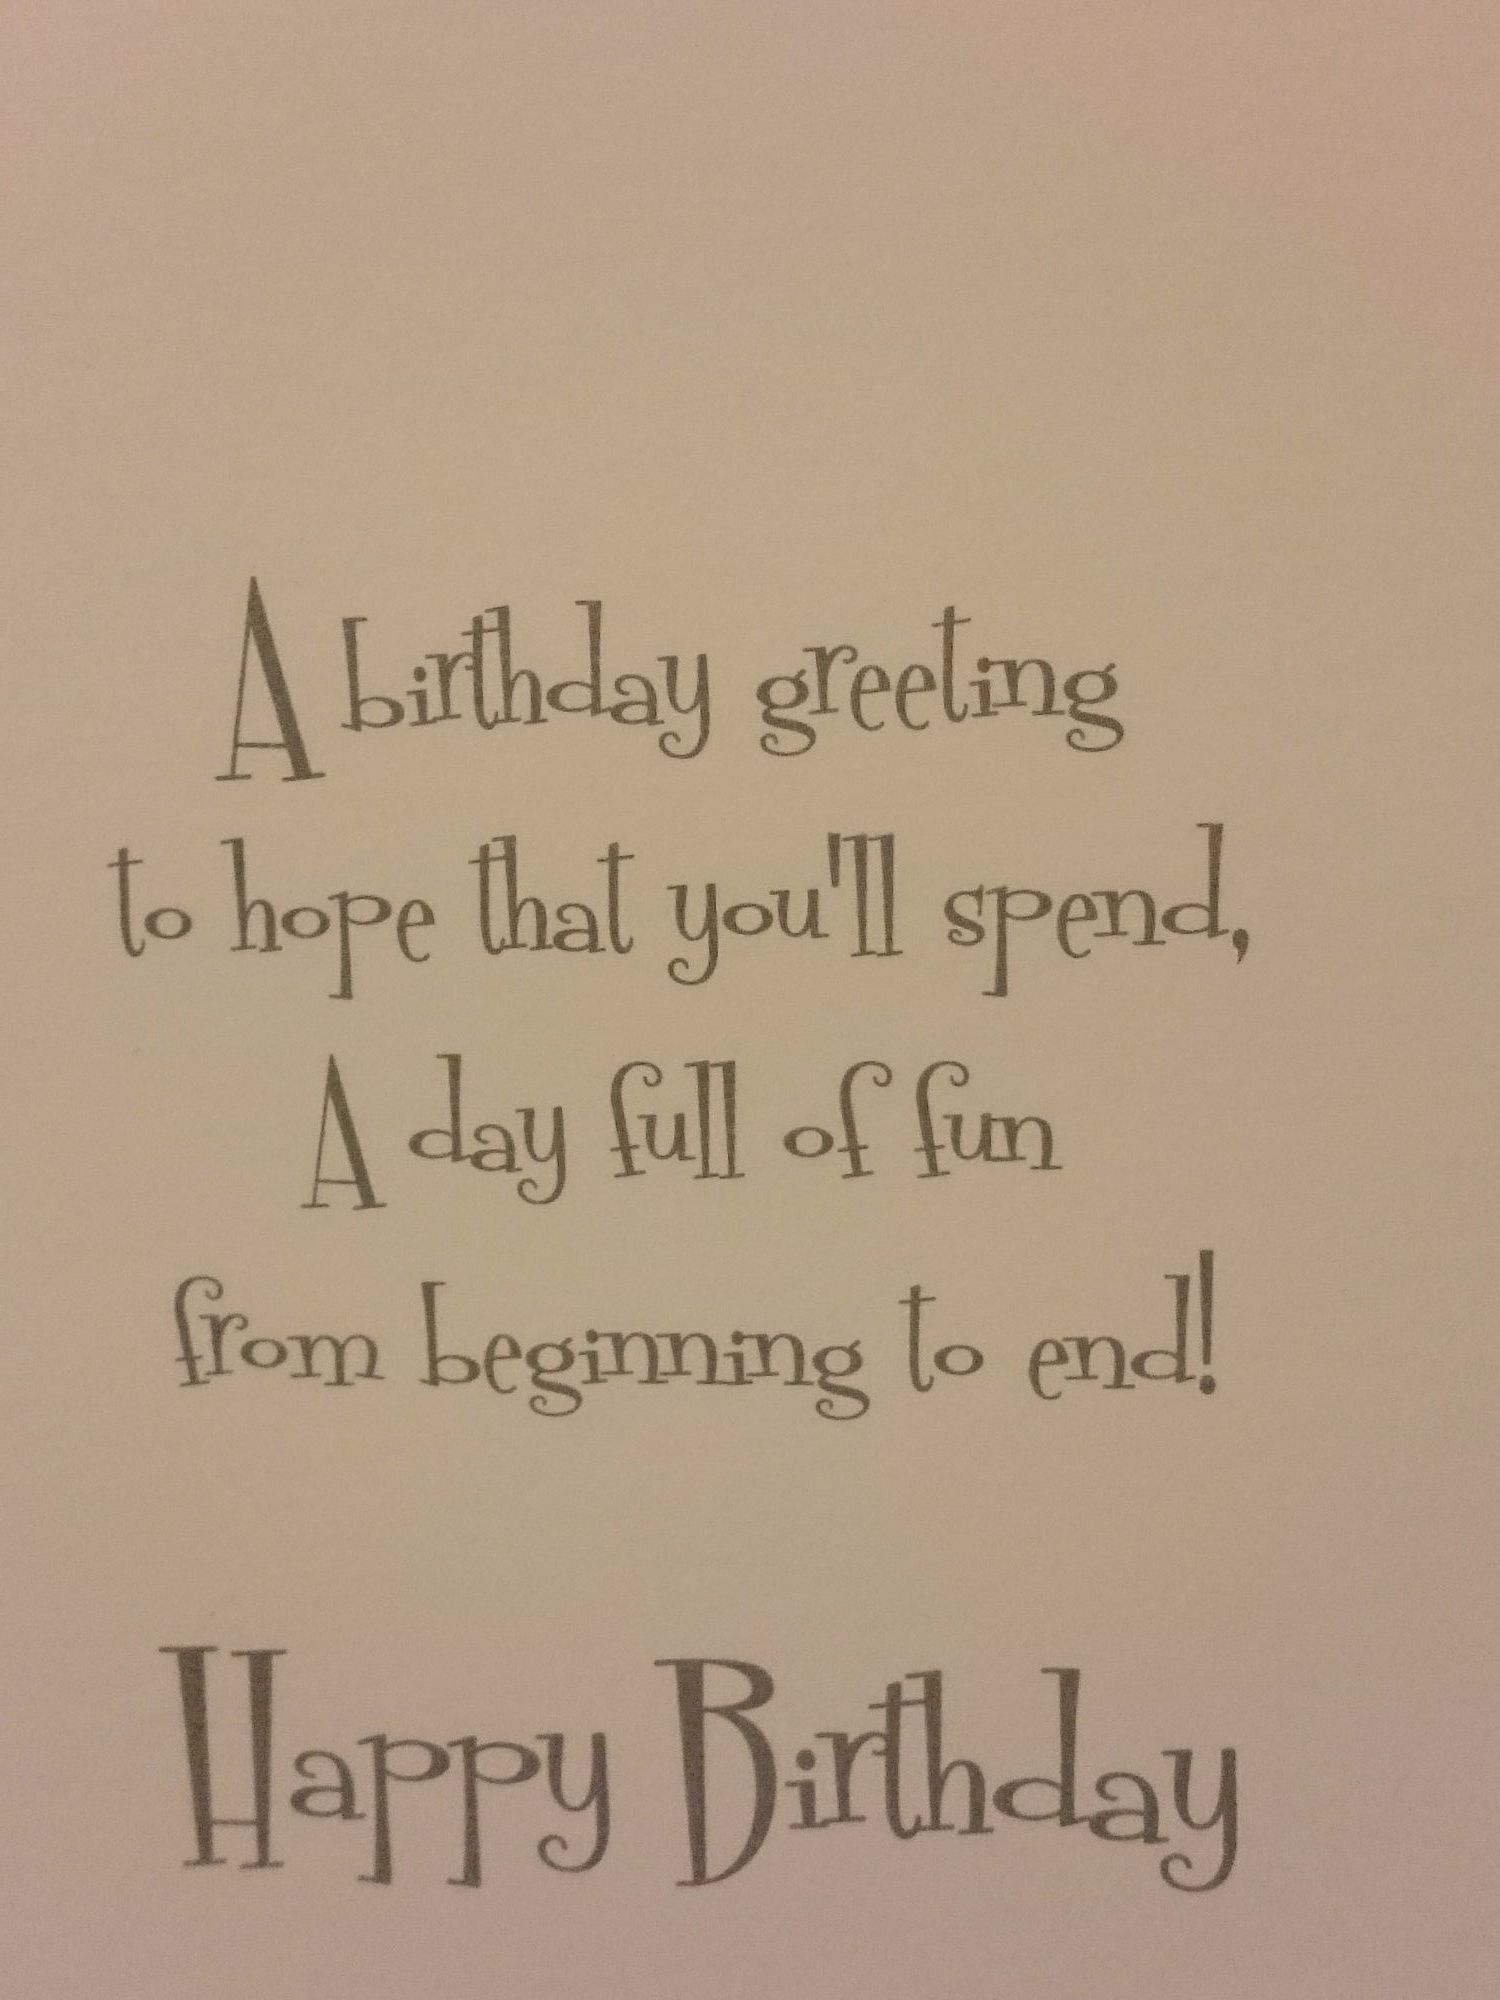 A birthday greeting
to hope that you'll spend,
A day full of fun
from beginning to end!
Happy Birthday